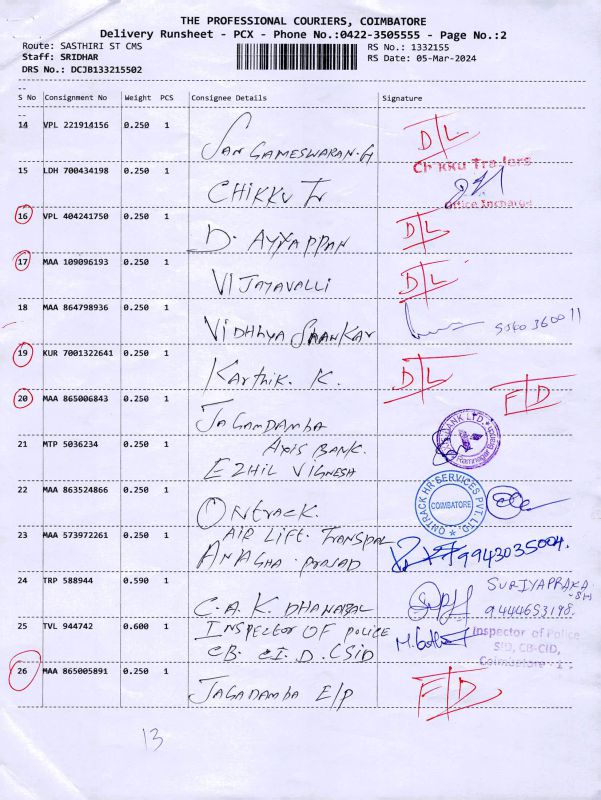 THE PROFESSIONAL COURIERS, COIMBATORE
Delivery Runsheet - PCX - Phone No.:0422-3505555 - Page No.:2
Route: SASTHIRI ST CMS
RS No.: 1332155
Staff: SRIDHAR
RS Date: 05-Mar-2024
DRS No.: DCJB133215502
S No Consignment No Weight PCS Consignee Details Signature
14 VPL 221914156 0.250 1 SANGAMESWARAN.G D/L
15 LDH 700434198 0.250 1 CHIKKU Tr Chikku Traders
Office Incharge
16 VPL 404241750 0.250 1 D. AYYAPPAN D/L
17 MAA 109096193 0.250 1 VIJAYAVALLI D/L
18 MAA 864798936 0.250 1 VIDHHYA SHANKAR
19 KUR 7001322641 0.250 1 Karthik. K. D/L
20 MAA 865006843 0.250 1 JAGAMDAMBA F/D
21 MTP 5036234 0.250 1 AXIS BANK.
EZHIL VIGNESH
BANK LTD.
Ramnagar Branch
22 MAA 863524866 0.250 1 ONtRACK.
ONTRACK HR SERVICES PVT. LTD.
COIMBATORE
23 MAA 573972261 0.250 1 AIR LIFT. TRANSPAL
ANAGHA. PRASAD 9943035004.
24 TRP 588944 0.590 1 C.A.K. DHANABAL SURIYAPRAKA
-SH
9444653198.
25 TVL 944742 0.600 1 INSPECtoR OF POLICE
CB. CI.D. CSID
Inspector of Police
SID, CB-CID,
Coimbatore
26 MAA 865005891 0.250 1 JAGADAMBA E/P F/D
13